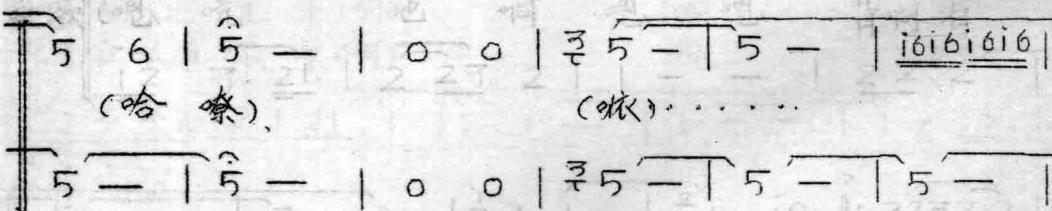 5 6 | 5 — | 0 0 | 5 — | 5 — | i6i6 i6i6
(哈 嘹) (咴)· · · · · ·
5 — | 5 — | 0 0 | 5 — | 5 — | 5 — |